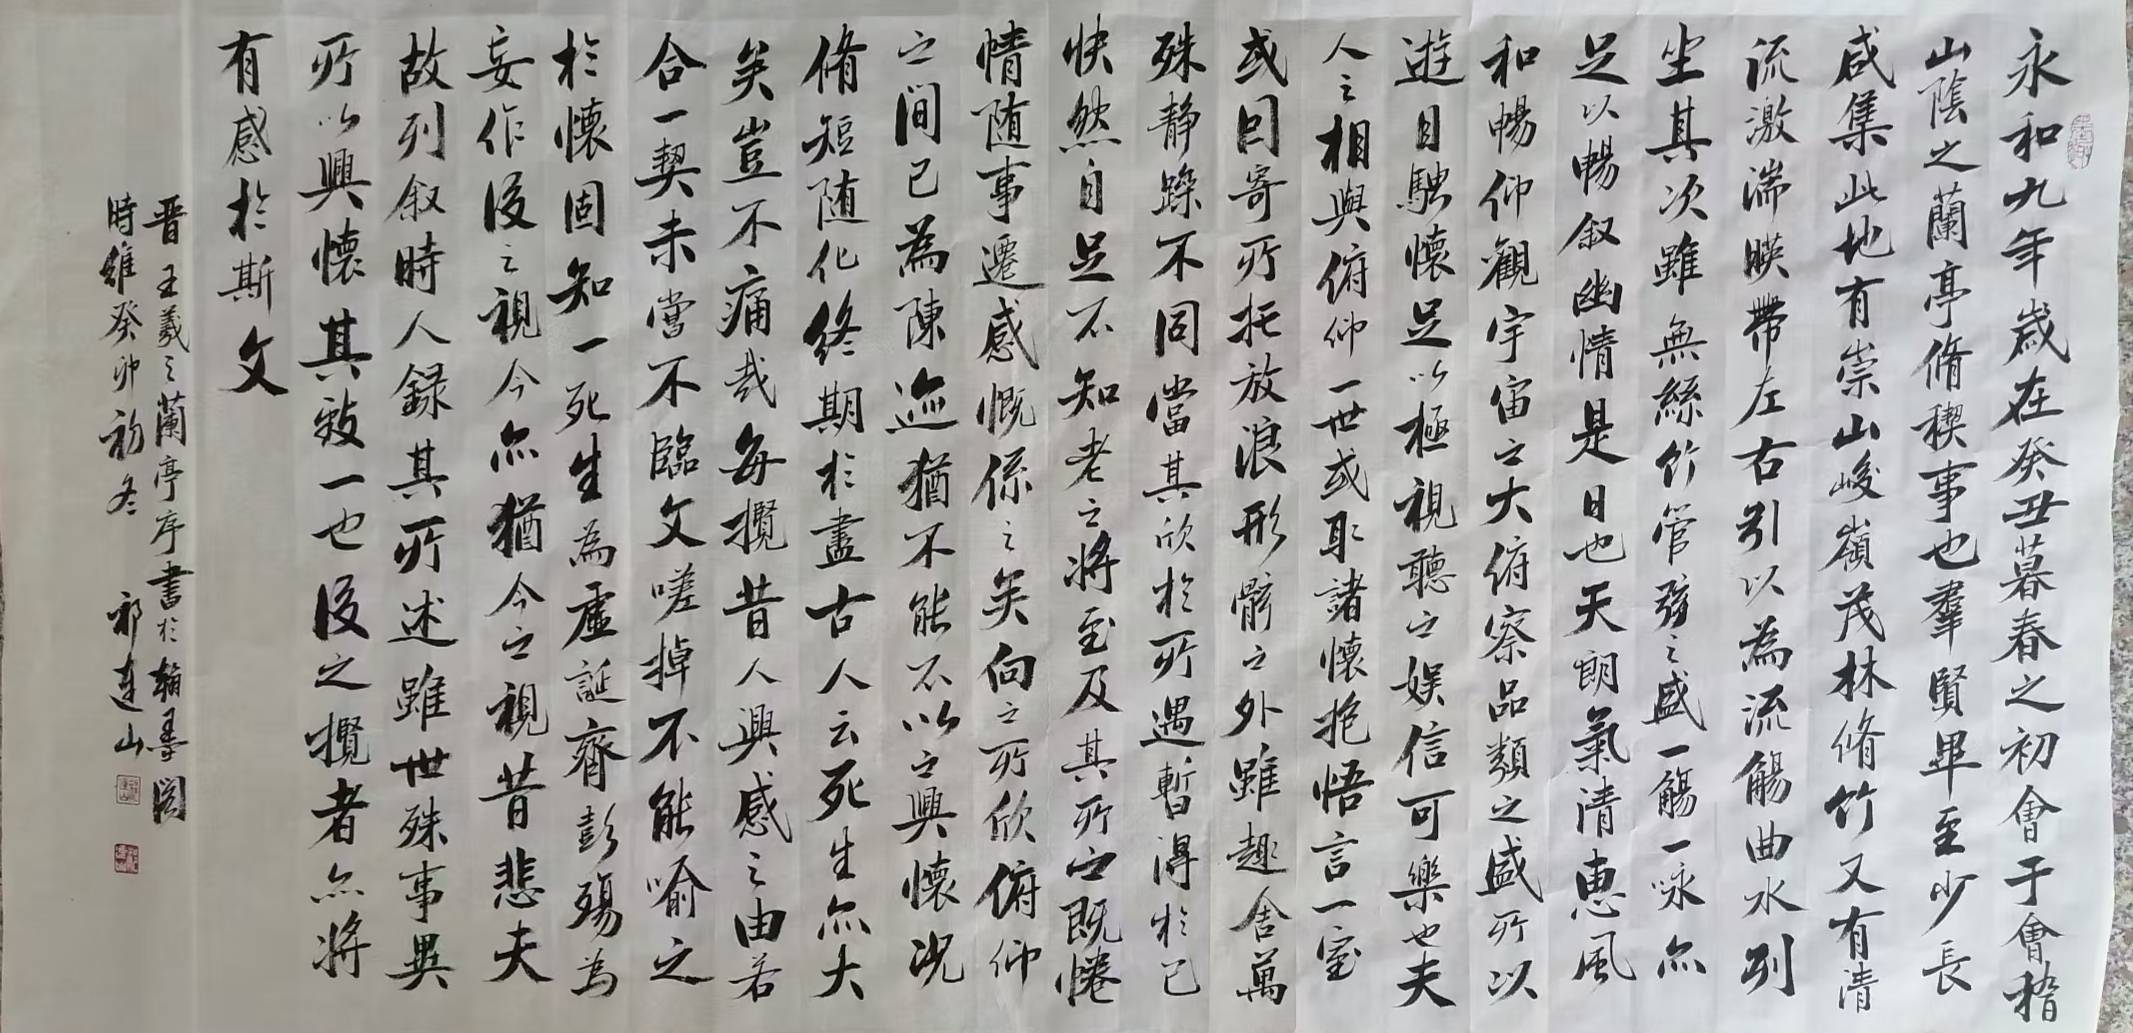 永和九年歲在癸丑暮春之初會于會稽
山陰之蘭亭脩稧事也羣賢畢至少長
咸集此地有崇山峻嶺茂林脩竹又有清
流激湍暎帶左右引以為流觴曲水列
坐其次雖無絲竹管弦之盛一觴一咏亦
足以暢叙幽情是日也天朗氣清惠風
和暢仰觀宇宙之大俯察品類之盛所以
遊目騁懷足以極視聽之娛信可樂也夫
人之相與俯仰一世或取諸懷抱悟言一室
或因寄所托放浪形骸之外雖趣舍萬
殊静躁不同當其欣於所遇暫得於己
快然自足不知老之將至及其所之既惓
情随事遷感慨係之矣向之所欣俯仰
之間已為陳迹猶不能不以之興懷況
脩短随化終期於盡古人云死生亦大
矣豈不痛哉每攬昔人興感之由若
合一契未嘗不臨文嗟掉不能喻之
於懷固知一死生為虛誕齊彭殤為
妄作後之視今亦猶今之視昔悲夫
故列叙時人錄其所述雖世殊事異
所以興懷其致一也後之攬者亦將
有感於斯文
晋王羲之蘭亭序書於翰墨閣
時維癸卯初冬 祁連山